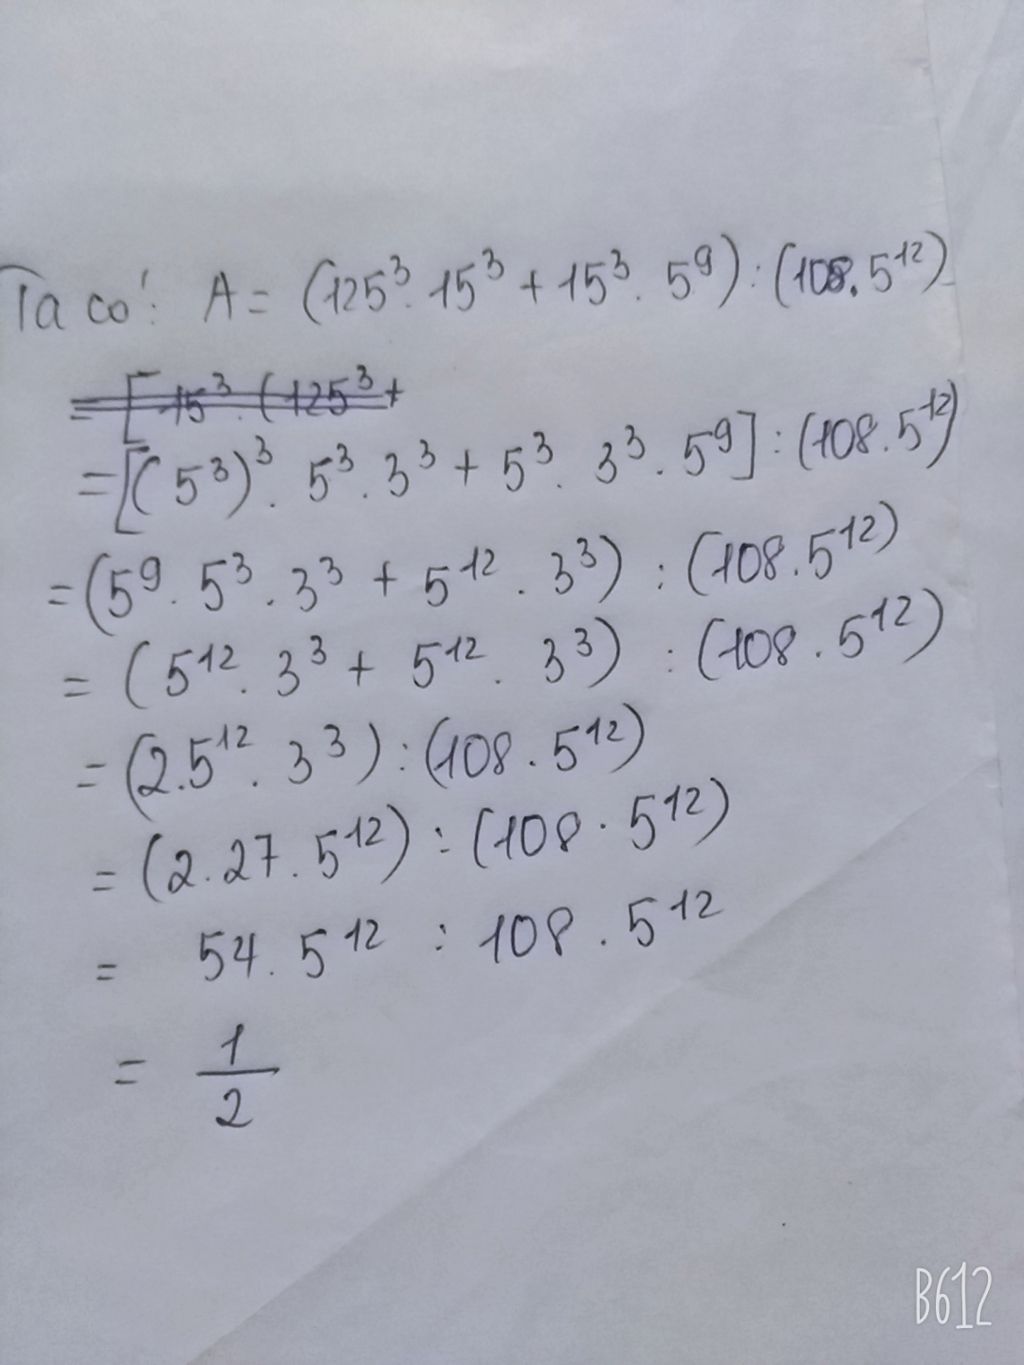 Ta có: A = (125³. 15³ + 15³. 5⁹) : (108. 5¹²)
= [ 15³. (125³ +
= [(5³)³. 5³. 3³ + 5³. 3³. 5⁹] : (108. 5¹²)
= (5⁹. 5³. 3³ + 5¹². 3³) : (108. 5¹²)
= (5¹². 3³ + 5¹². 3³) : (108. 5¹²)
= (2. 5¹². 3³) : (108. 5¹²)
= (2. 27. 5¹²) : (108. 5¹²)
= 54. 5¹² : 108. 5¹²
= 1/2
B612